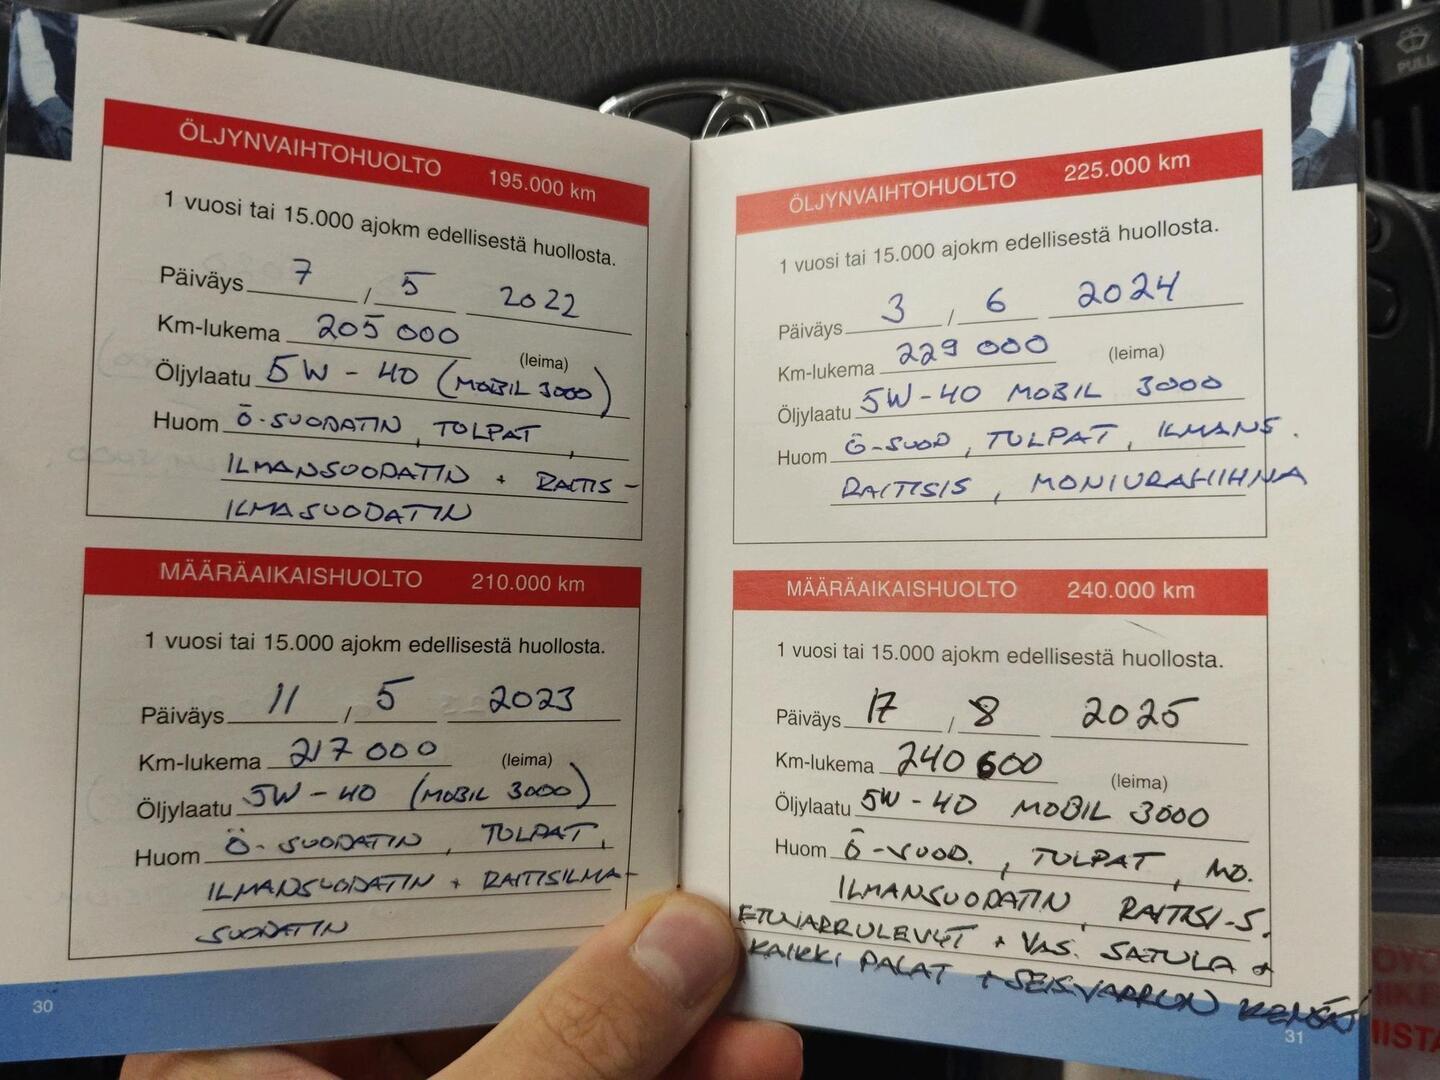 ÖLJYNVAIHTOHUOLTO 195.000 km
1 vuosi tai 15.000 ajokm edellisestä huollosta.
Päiväys 7 / 5 2022
Km-lukema 205 000
(leima)
Öljylaatu 5W-40 (MOBIL 3000)
Huom Ö-SUODATIN, TULPAT,
ILMANSUODATIN + RAITIS-
ILMASUODATIN
MÄÄRÄAIKAISHUOLTO 210.000 km
1 vuosi tai 15.000 ajokm edellisestä huollosta.
Päiväys 11 / 5 2023
Km-lukema 217 000
(leima)
Öljylaatu 5W-40 (MOBIL 3000)
Huom Ö-SUODATIN, TULPAT,
ILMANSUODATIN + RAITISILMA-
SUODATIN
30
ÖLJYNVAIHTOHUOLTO 225.000 km
1 vuosi tai 15.000 ajokm edellisestä huollosta.
Päiväys 3 / 6 2024
Km-lukema 229 000
(leima)
Öljylaatu 5W-40 MOBIL 3000
Huom Ö-SUOD, TULPAT, ILMANS.
RAITISIS, MONIURAHIHNA
MÄÄRÄAIKAISHUOLTO 240.000 km
1 vuosi tai 15.000 ajokm edellisestä huollosta.
Päiväys 17 / 8 2025
Km-lukema 240 600
(leima)
Öljylaatu 5W-40 MOBIL 3000
Huom Ö-SUOD., TULPAT, MO.
ILMANSUODATIN, RAITISI-S.
ETUJARRULEVYT + VAS. SATULA +
KAIKKI PALAT + SEIS.VARRUN
31
PULL